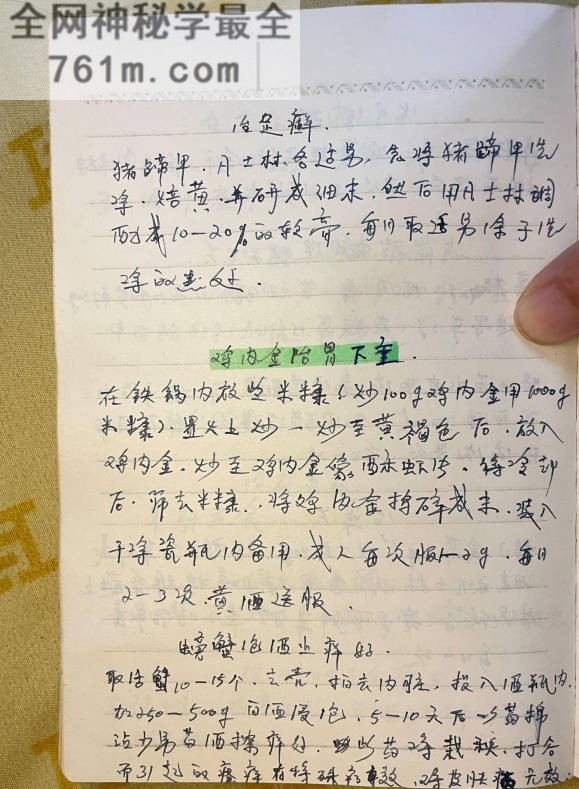 全网神秘学最全
761m.com
治足癣.
猪蹄甲.凡士林各适另,先将猪蹄甲洗
净.焙黄.并研成细末.然后用凡士林调
配成10—20%的软膏.每日取适另涂于洗
净的患处.
鸡内金治胃下垂.
在铁锅内放些米糠(炒100g鸡内金用1000g
米糠).置火上炒一炒至黄褐色后.放入
鸡内金.炒至鸡内金象酥虾片.待冷却
后.筛去米糠.将鸡内金捣碎成末.装入
干净瓷瓶内备用成人每次服1—2g.每日
2—3次.黄酒送服.
螃蟹泡酒止痒好.
取活蟹10—15个.去壳.拍去内脏,投入酒瓶内.
加250—500g白酒浸泡.5—10天后以药棉
沾少另药酒擦痒处.此药对栽秧.打谷
而引起的瘙痒有特殊疗效.对皮肤 无效.